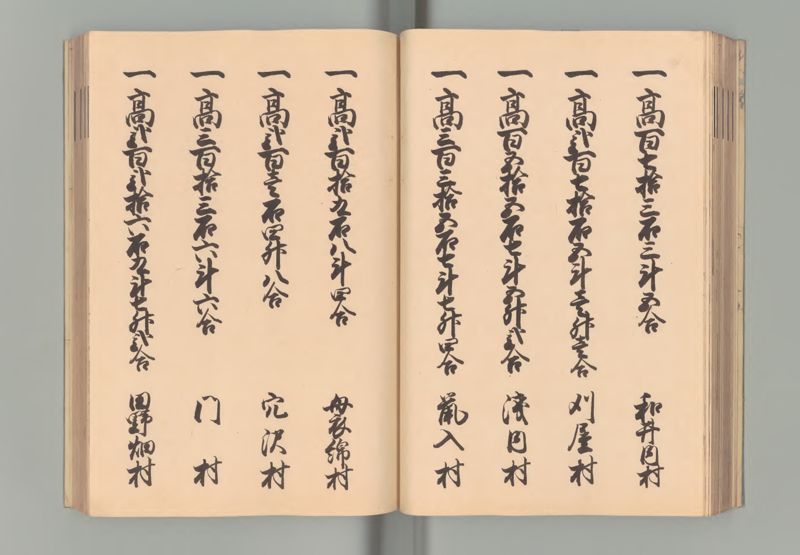 一 高百七拾三石三斗五合 和井内村
一 高弐百七拾石五斗壱升壱合 刈屋村
一 高百五拾五石七斗五升弐合 浅内村
一 高三百三拾五石七斗七升四合 鼠入村
一 高弐百拾九石八斗四合 母衣綿村
一 高弐百壱石四升八合 穴沢村
一 高三百拾三石六斗六合 門 村
一 高弐百弐拾六石九斗七升弐合 田野畑村